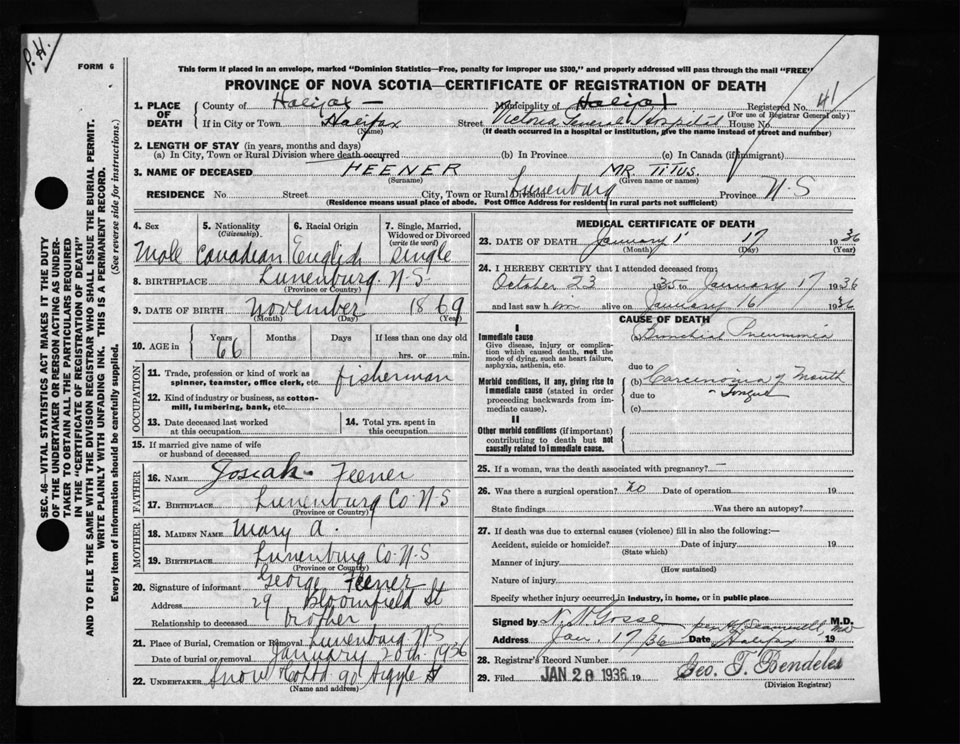 P.H.
FORM 6
This form if placed in an envelope, marked "Dominion Statistics—Free, penalty for improper use $300," and properly addressed will pass through the mail "FREE"
PROVINCE OF NOVA SCOTIA—CERTIFICATE OF REGISTRATION OF DEATH
1. PLACE OF DEATH
County of Halifax Municipality of Halifax Registered No. 41
(For use of Registrar General only)
If in City or Town Halifax Street Victoria General Hospital House No.
(Name) (If death occurred in a hospital or institution, give the name instead of street and number)
2. LENGTH OF STAY (in years, months and days)
(a) In City, Town or Rural Division where death occurred (b) In Province (c) In Canada (if immigrant)
3. NAME OF DECEASED FEENER MR. TITUS.
(Surname) (Given name or names)
RESIDENCE No. Street City, Town or Rural Division Lunenburg Province N-S
(Residence means usual place of abode. Post Office Address for residents in rural parts not sufficient)
SEC. 46—VITAL STATISTICS ACT MAKES IT THE DUTY
OF THE UNDERTAKER OR PERSON ACTING AS UNDER-
TAKER TO OBTAIN ALL THE PARTICULARS REQUIRED
IN THE "CERTIFICATE OF REGISTRATION OF DEATH"
AND TO FILE THE SAME WITH THE DIVISION REGISTRAR WHO SHALL ISSUE THE BURIAL PERMIT.
WRITE PLAINLY WITH UNFADING INK. THIS IS A PERMANENT RECORD.
Every item of information should be carefully supplied. (See reverse side for instructions.)
4. Sex 5. Nationality (Citizenship). 6. Racial Origin 7. Single, Married, Widowed or Divorced (write the word)
Male Canadian English Single
8. BIRTHPLACE Lunenburg N-S
(Province or Country)
9. DATE OF BIRTH November 1869
(Month) (Day) (Year)
10. AGE in Years Months Days If less than one day old
66 hrs. or min.
OCCUPATION
11. Trade, profession or kind of work as spinner, teamster, office clerk, etc. fisherman
12. Kind of industry or business, as cotton-mill, lumbering, bank, etc.
13. Date deceased last worked at this occupation 14. Total yrs. spent in this occupation
15. If married give name of wife or husband of deceased
FATHER
16. NAME Josiah Feener
17. BIRTHPLACE Lunenburg Co N-S
(Province or Country)
MOTHER
18. MAIDEN NAME Mary A
19. BIRTHPLACE Lunenburg Co. N-S
(Province or Country)
20. Signature of informant George Feener
Address 29 Bloomfield St
Relationship to deceased brother
21. Place of Burial, Cremation or Removal Lunenburg N-S
Date of burial or removal January 20th 1936
22. UNDERTAKER Snow & Co Ltd 90 Argyle St
(Name and address)
MEDICAL CERTIFICATE OF DEATH
23. DATE OF DEATH January 17 1936
(Month) (Day) (Year)
24. I HEREBY CERTIFY that I attended deceased from:
October 23 1935 to January 17 1936
and last saw him alive on January 16 1936
CAUSE OF DEATH
I
Immediate cause
Give disease, injury or complication which caused death, not the mode of dying, such as heart failure, asphyxia, asthenia, etc.
(a) Bronchial Pneumonia
due to
Morbid conditions, if any, giving rise to immediate cause (stated in order proceeding backwards from immediate cause).
(b) Carcinoma of Mouth
due to Tongue
(c)
II
Other morbid conditions (if important) contributing to death but not causally related to immediate cause.
25. If a woman, was the death associated with pregnancy? —
26. Was there a surgical operation? no Date of operation 19
State findings Was there an autopsy?
27. If death was due to external causes (violence) fill in also the following:—
Accident, suicide or homicide? Date of injury 19
(State which)
Manner of injury
(How sustained)
Nature of injury
Specify whether injury occurred in industry, in home, or in public place
Signed by N. N. Gosse M.D.
Address Jan. 17/36 Date Halifax 19
28. Registrar's Record Number
29. Filed JAN 20 1936 19
(Division Registrar)